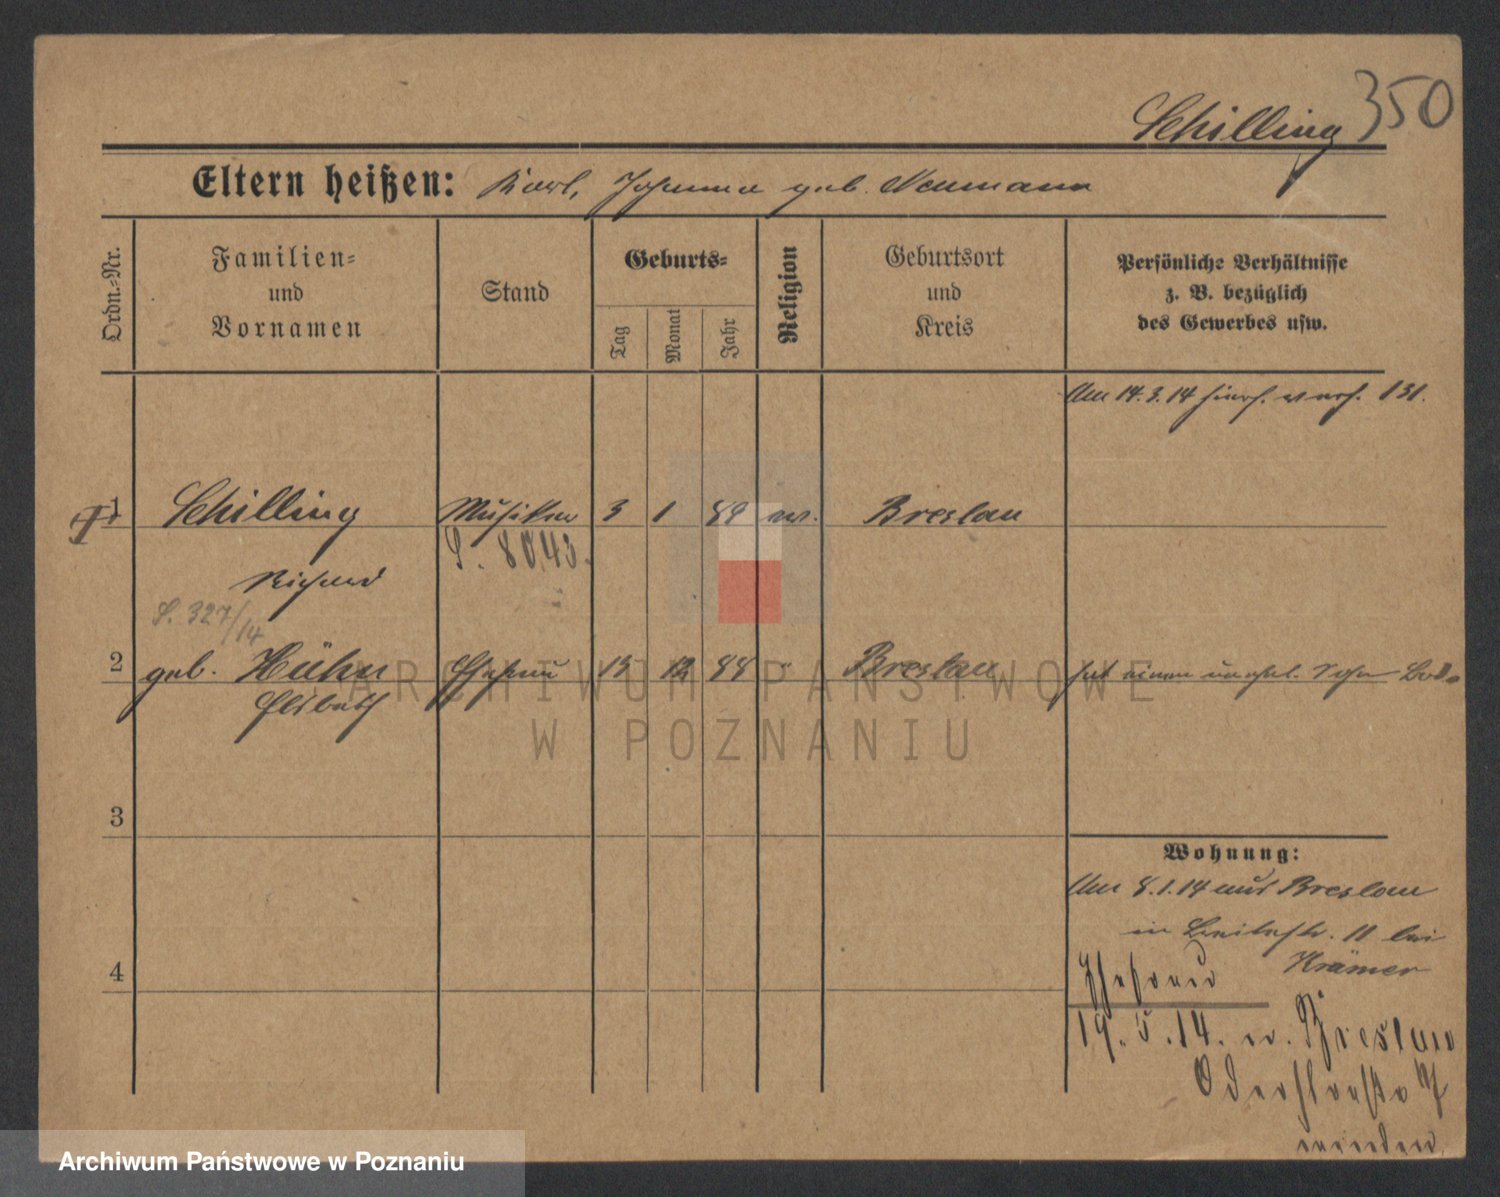 Schilling 350
Eltern heißen: Karl, Johanna geb. Neumann
Ordn.-Nr.
Familien-
und
Vornamen
Stand
Geburts-
Tag
Monat
Jahr
Religion
Geburtsort
und
Kreis
Persönliche Verhältnisse
z. B. bezüglich
des Gewerbes usw.
Am 14.3.14 hier verh. 131.
1 Schilling Musiker 3 1 89 ev. Breslau
S. 8043.
Richard
S. 327/14
2 geb. Hühn Ehefrau 13 12 88 " Breslau hat einen unehel. Sohn
Elisabeth
ARCHIWUM PAŃSTWOWE
W POZNANIU
3
Wohnung:
Am 8.1.14 aus Breslau
in Breitestr. 11 bei
Krämer
4
Ehefrau
19.5.14. n. Breslau
Oderstraße 7
Archiwum Państwowe w Poznaniu